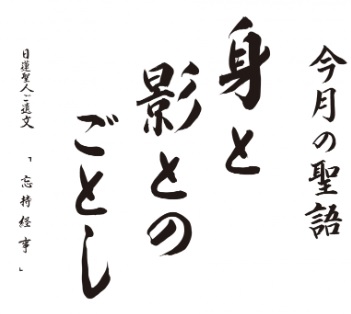 今月の聖語
身と
影との
ごとし
日蓮聖人ご遺文
「忘持経事」